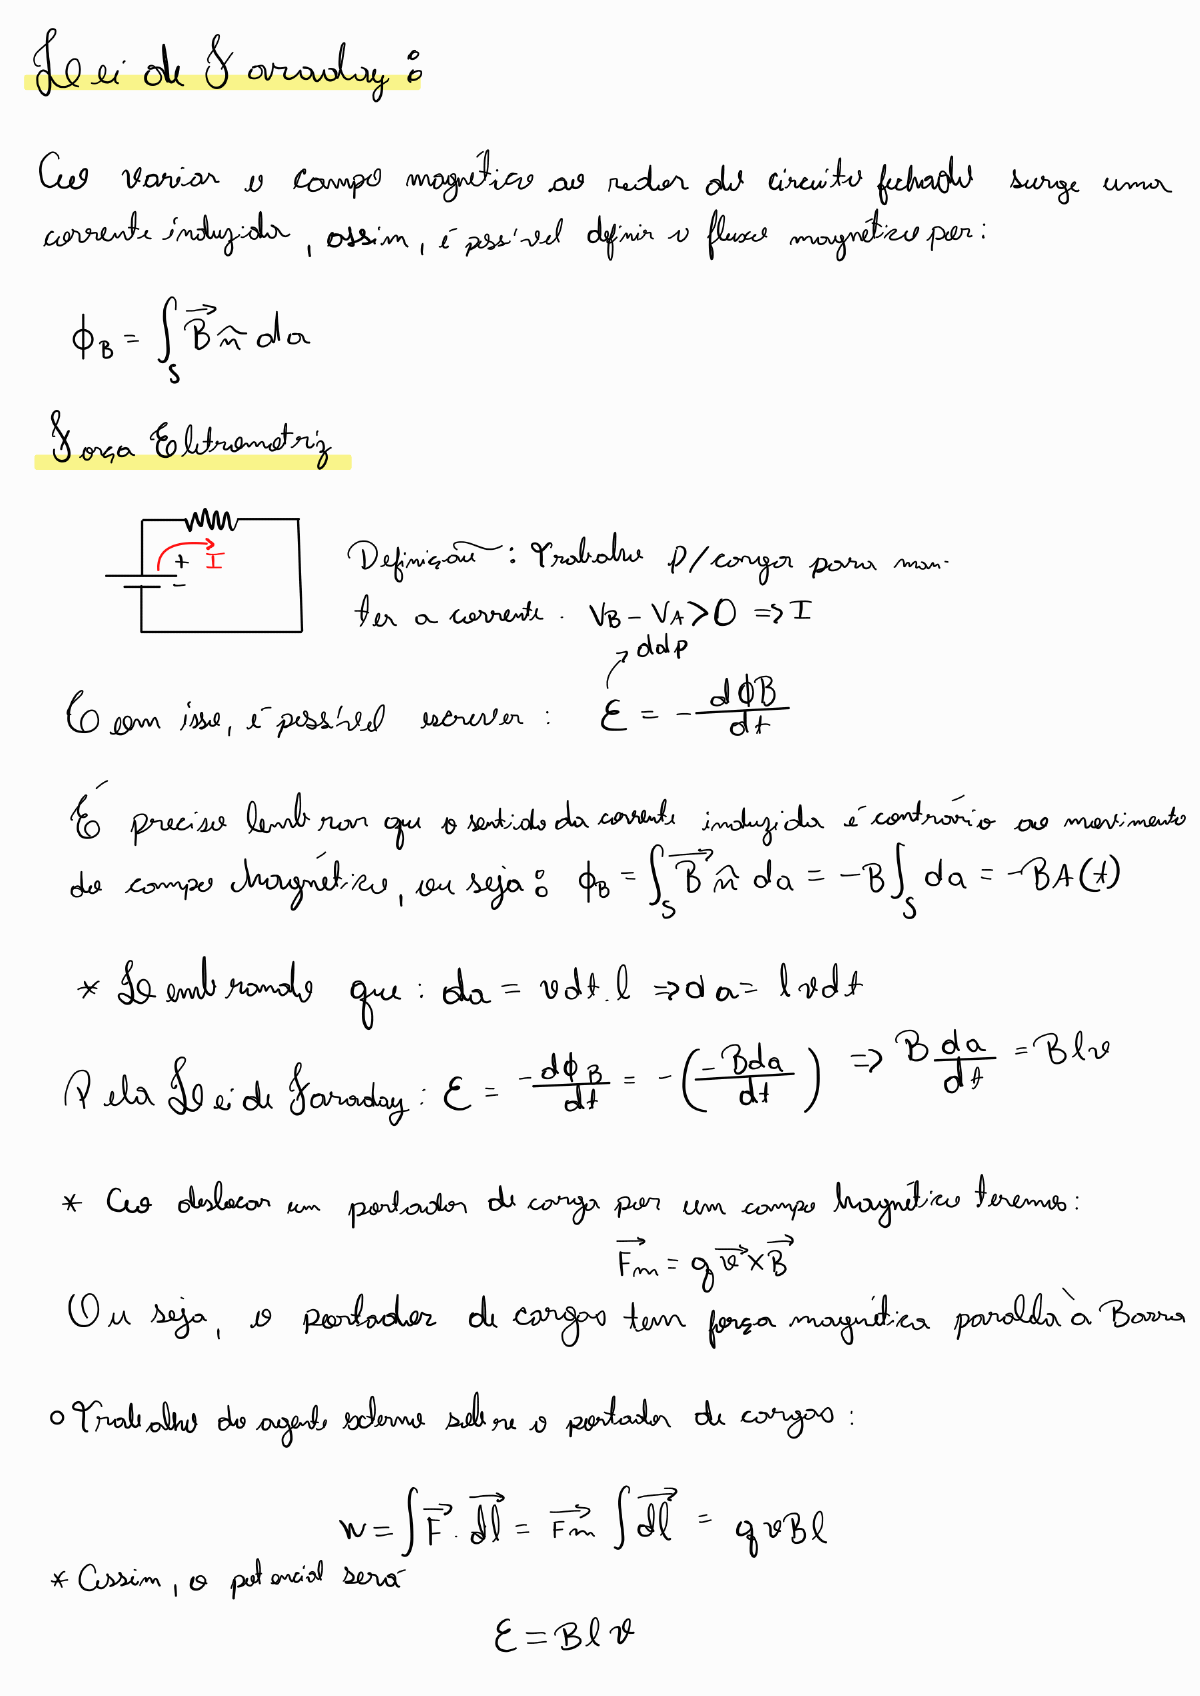 Lei de Faraday:
Ao variar o campo magnético ao redor do circuito fechado surge uma
corrente induzida, assim, é possível definir o fluxo magnético por:
ϕ_B = ∫_S B⃗ n̂ da
Força Eletromotriz
+ I
-
Definição: Trabalho p/ carga para man-
ter a corrente. V_B - V_A > 0 => I
ddp
Com isso, é possível escrever: ε = - dϕB/dt
É preciso lembrar que o sentido da corrente induzida é contrário ao movimento
do campo Magnético, ou seja: ϕ_B = ∫_S B⃗ n̂ da = -B ∫_S da = -BA(t)
* Lembrando que: da = vdt.l => da = lvdt
Pela Lei de Faraday: ε = -dϕ_B/dt = -(-Bda/dt) => B da/dt = Blv
* Ao deslocar um portador de carga por um campo Magnético teremos:
F⃗m = q v⃗ x B⃗
Ou seja, o portador de cargas tem força magnética paralela à Barra
o Trabalho do agente externo sobre o portador de cargas:
w = ∫ F⃗ . dl⃗ = F⃗m ∫ dl⃗ = qvBl
* Assim, o potencial será
ε = Blv